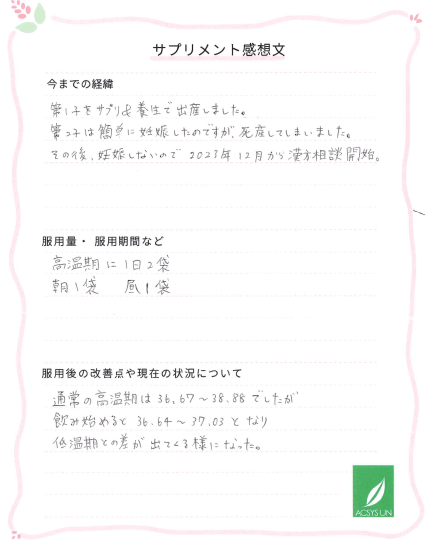 サプリメント感想文
今までの経緯
第1子をサプリ&養生で出産しました。
第2子は簡単に妊娠したのですが、死産してしまいました。
その後、妊娠しないので 2023年12月から漢方相談開始。
服用量・ 服用期間など
高温期に1日2袋
朝1袋 昼1袋
服用後の改善点や現在の状況について
通常の高温期は36.67〜38.88でしたが
飲み始めると 36.64〜37.03となり
低温期との差が出てくる様になった。
ACSYS UN